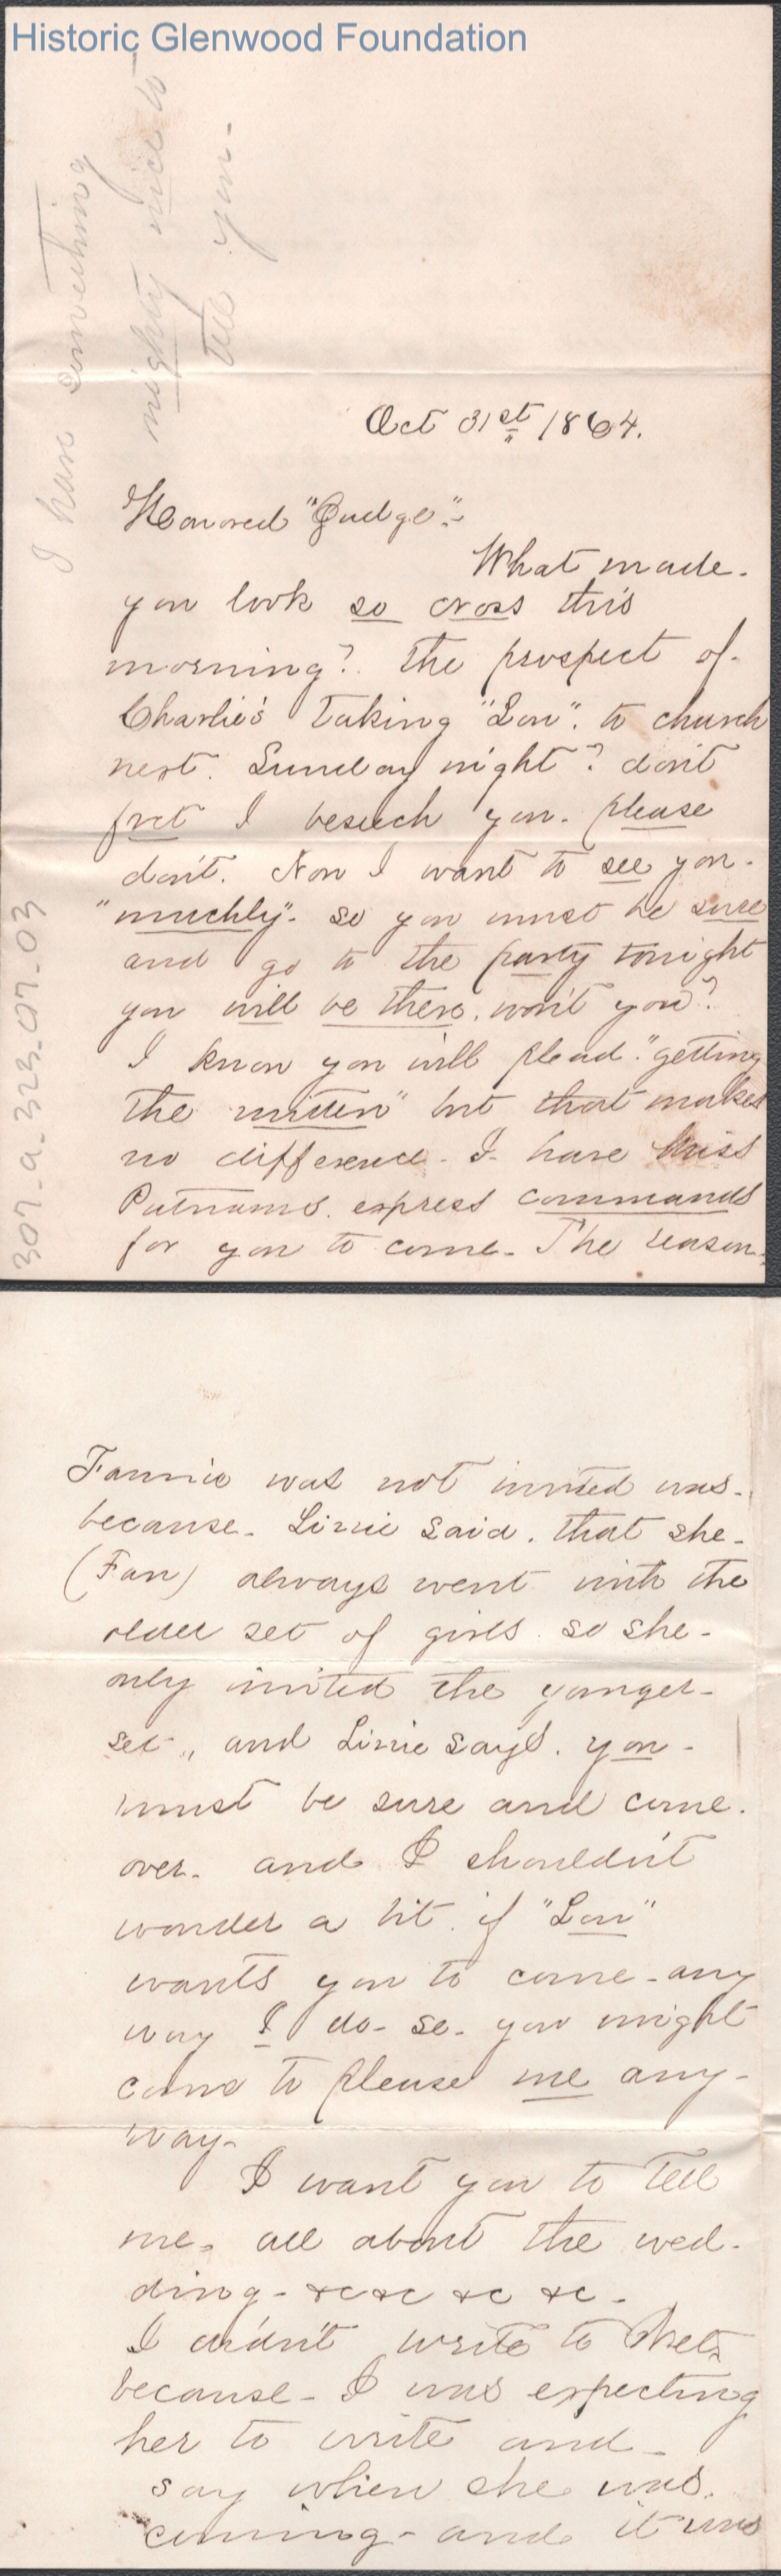 Historic Glenwood Foundation
I have something
mighty nice to
tell you -
Oct 31st 1864.
Honored "Judge":-
What made.
you look so cross this
morning? The prospect of.
Charlie's taking "Lou". to church
next. Sunday night? don't
fret I beseech you. please
don't. Now I want to see you.
"muchly". so you must be sure
and go to the party tonight
you will be there. won't you?
I know you will plead. "getting
the mitten" but that makes
no difference. I. have Miss
Putnams. express commands
for you to come. The reason.
307-a-323-07-03
Fannie was not invited was.
because. Lizzie said. that she.
(Fan) always went with the
older set of girls. so she.
only invited the younger.
set., and Lizzie says. you.
must be sure and come.
over. and I shouldn't
wonder a bit. if "Lou"
wants you to come. any
way I do. so. you might
come to please me any-
way.
I want you to tell
me. all about the wed-
ding. &c &c &c &c.
I didn't write to
because. I was expecting
her to write and.
say when she was.
coming. and it was